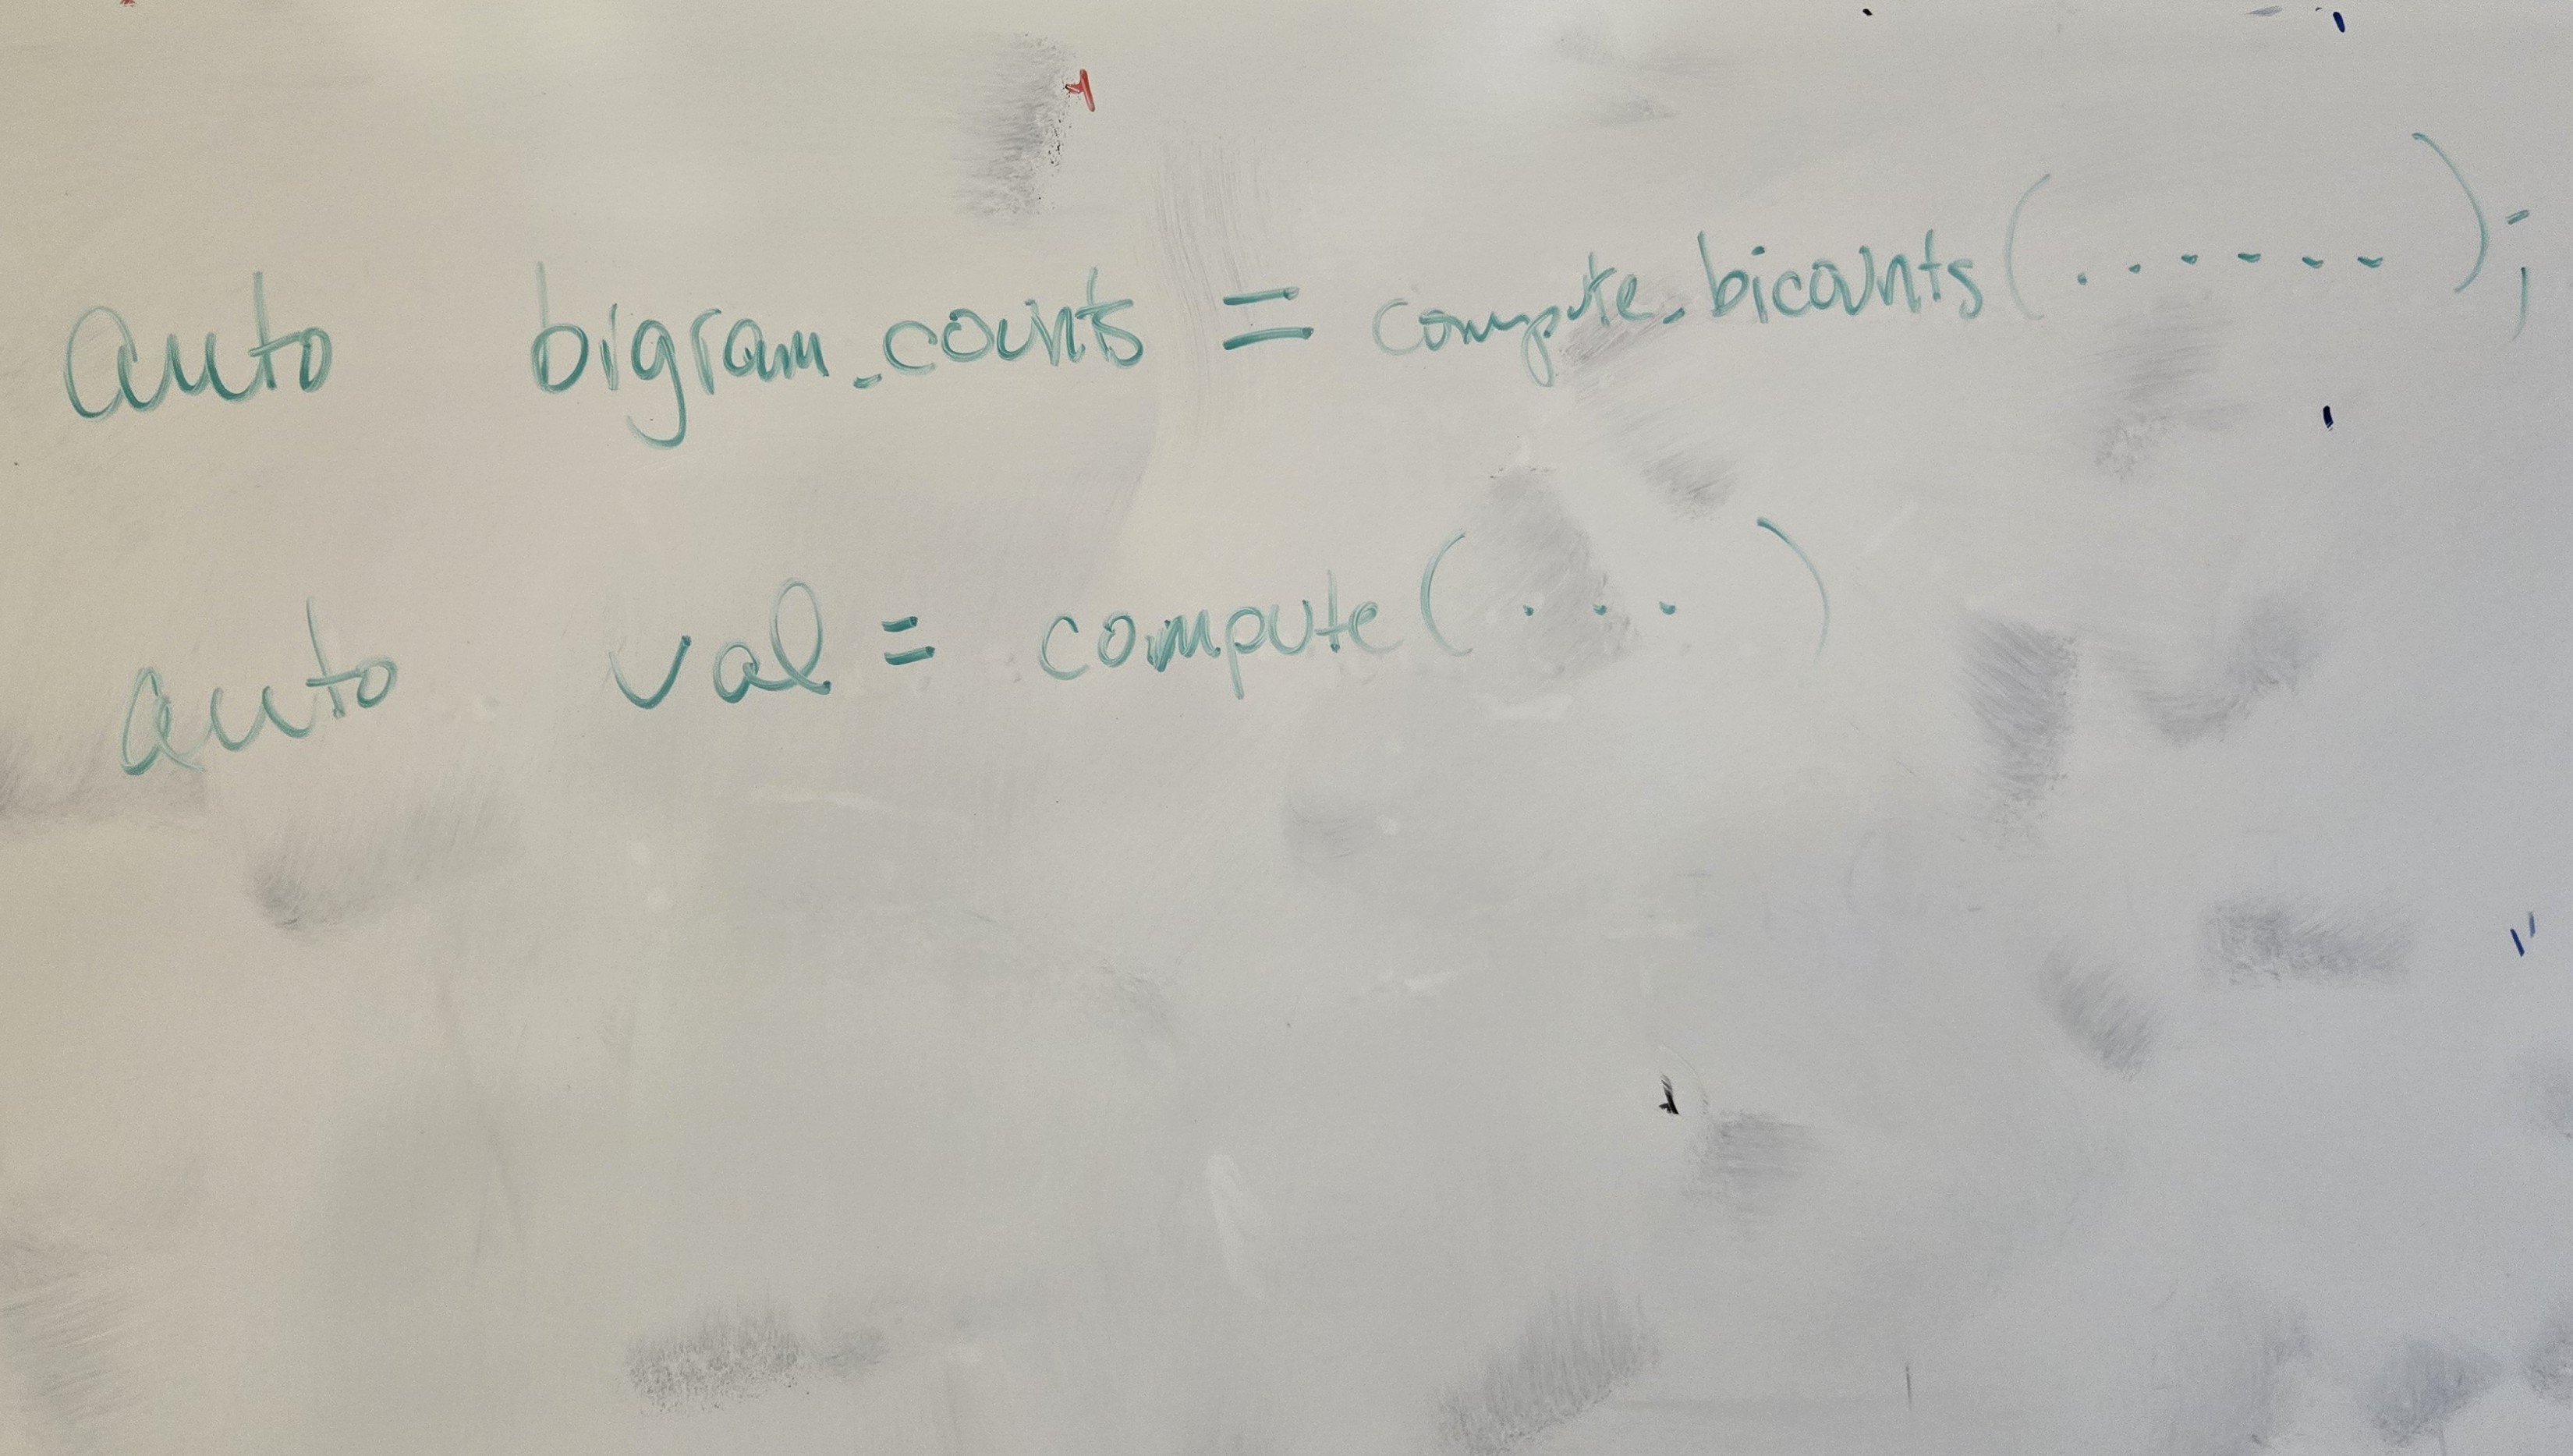 auto bigram_counts = compute_bicounts(......);
auto val = compute(...)